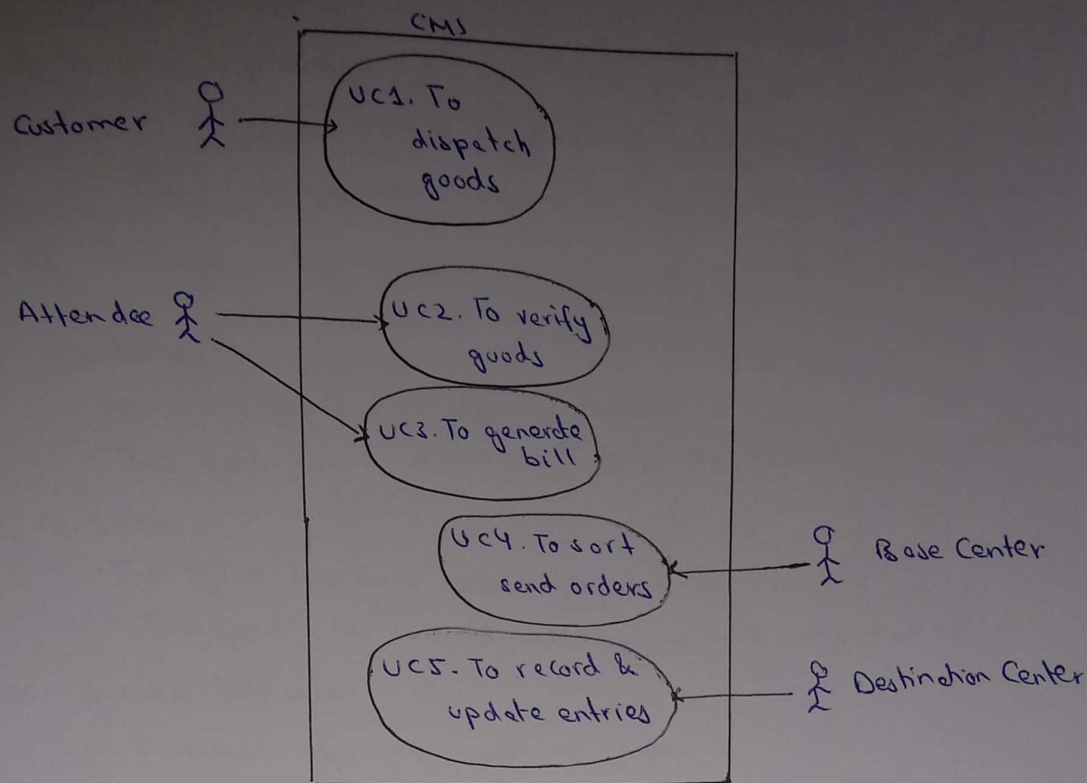 CMS
Customer
UC1. To
dispatch
goods
Attendee
UC2. To verify
goods
UC3. To generate
bill
UC4. To sort
send orders
Base Center
UC5. To record &
update entries
Destination Center